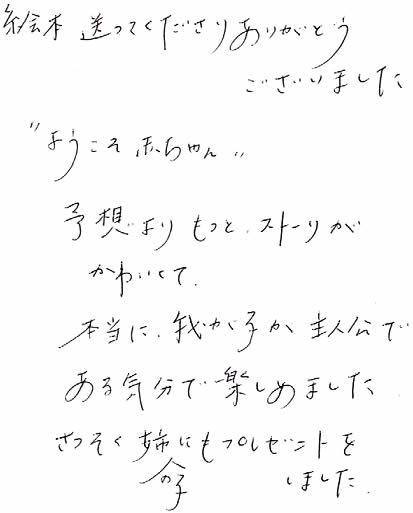 絵本 送ってくださりありがとう
ございました
"ようこそ赤ちゃん"
予想よりもっと、ストーリが
かわいくて、
本当に、我が子が主人公で
ある気分で楽しめました
さっそく姉にもプレゼントを
の子 しました